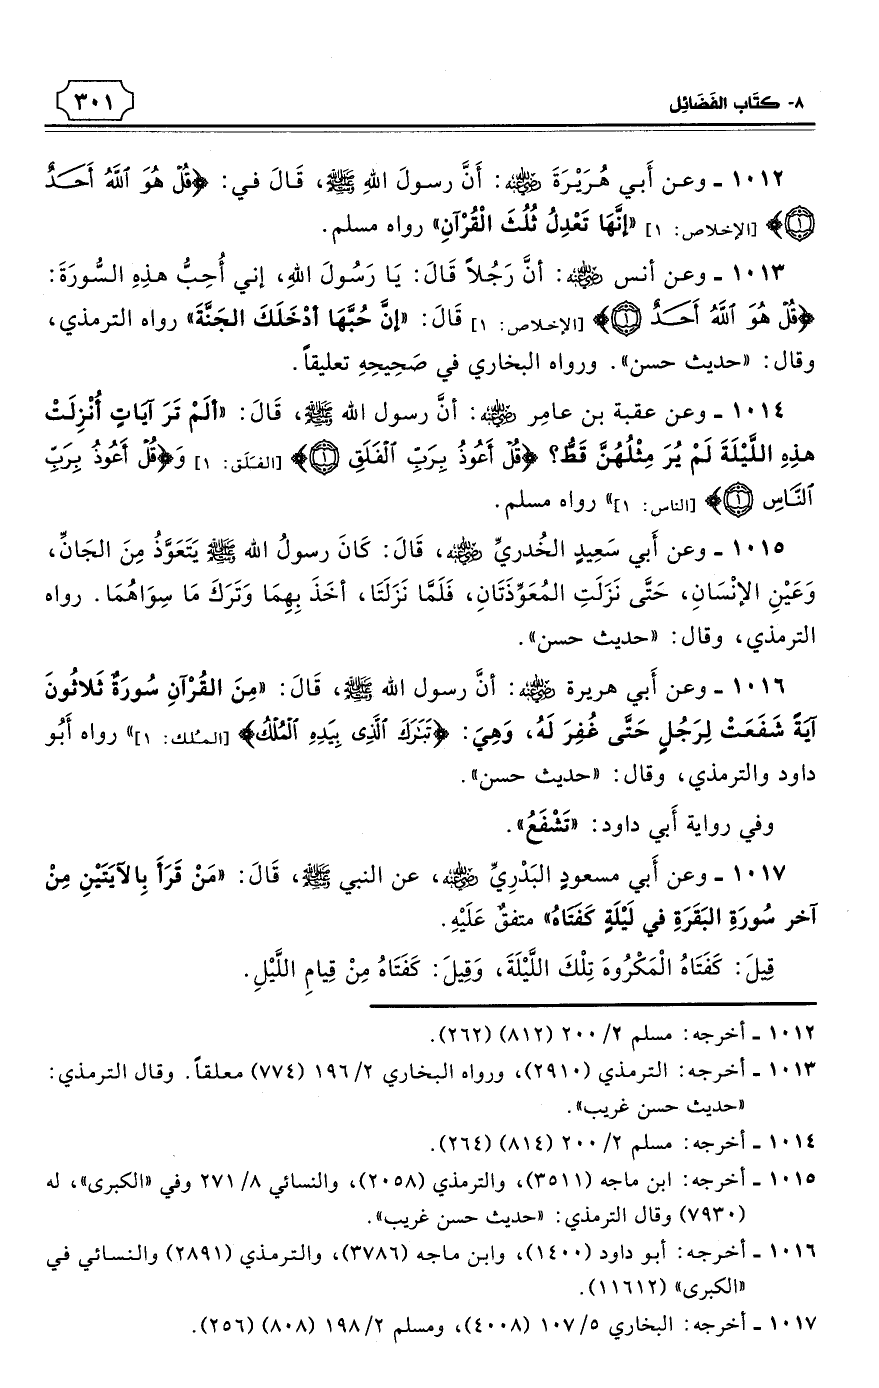 ٨- كتَاب الفَضَائِل
٣٠١
١٠١٢ ـ وعن أَبي هُرَيْرَةَ رضي الله عنه: أَنَّ رسولَ اللهِ ﷺ، قَالَ في: ﴿قُلْ هُوَ ٱللَّهُ أَحَدٌ
۝١﴾ [الإخلاص: ١] «إنَّهَا تَعْدِلُ ثُلُثَ الْقُرْآنِ» رواه مسلم.
١٠١٣ ـ وعن أنس رضي الله عنه: أنَّ رَجُلاً قَالَ: يَا رَسُولَ اللهِ، إني أُحِبُّ هذِهِ السُّورَةَ:
﴿قُلْ هُوَ ٱللَّهُ أَحَدٌ ۝١﴾ [الإخلاص: ١] قَالَ: «إنَّ حُبَّهَا أدْخَلَكَ الجَنَّةَ» رواه الترمذي،
وقال: «حديث حسن». ورواه البخاري في صَحِيحِهِ تعليقاً.
١٠١٤ ـ وعن عقبة بن عامِر رضي الله عنه: أنَّ رسول الله ﷺ، قَالَ: «ألَمْ تَرَ آيَاتٍ أُنْزِلَتْ
هذِهِ اللَّيْلَةَ لَمْ يُرَ مِثْلُهُنَّ قَطُّ؟ ﴿قُلْ أَعُوذُ بِرَبِّ ٱلْفَلَقِ ۝١﴾ [الفلَق: ١] وَ﴿قُلْ أَعُوذُ بِرَبِّ
ٱلنَّاسِ ۝١﴾ [الناس: ١]» رواه مسلم.
١٠١٥ ـ وعن أبي سَعِيدٍ الخُدريِّ رضي الله عنه، قَالَ: كَانَ رسولُ الله ﷺ يَتَعَوَّذُ مِنَ الجَانِّ،
وَعَيْنِ الإنْسَانِ، حَتَّى نَزَلَتِ المُعَوِّذَتَانِ، فَلَمَّا نَزَلَتَا، أخَذَ بِهِمَا وَتَرَكَ مَا سِوَاهُمَا. رواه
الترمذي، وقال: «حديث حسن».
١٠١٦ ـ وعن أبي هريرة رضي الله عنه: أنَّ رسول الله ﷺ، قَالَ: «مِنَ القُرْآنِ سُورَةٌ ثَلاثُونَ
آيَةً شَفَعَتْ لِرَجُلٍ حَتَّى غُفِرَ لَهُ، وَهِيَ: ﴿تَبَٰرَكَ ٱلَّذِى بِيَدِهِ ٱلْمُلْكُ﴾ [المُلك: ١]» رواه أَبُو
داود والترمذي، وقال: «حديث حسن».
وفي رواية أَبي داود: «تَشْفَعُ».
١٠١٧ ـ وعن أَبي مسعودٍ البَدْرِيِّ رضي الله عنه، عن النبي ﷺ، قَالَ: «مَنْ قَرَأَ بِالآيَتَيْنِ مِنْ
آخر سُورَةِ البَقَرَةِ في لَيْلَةٍ كَفَتَاهُ» متفقٌ عَلَيْهِ.
قِيلَ: كَفَتَاهُ الْمَكْرُوهَ تِلْكَ اللَّيْلَةَ، وَقِيلَ: كَفَتَاهُ مِنْ قِيامِ اللَّيْلِ.
١٠١٢ ـ أخرجه: مسلم ٢/ ٢٠٠ (٨١٢) (٢٦٢).
١٠١٣ ـ أخرجه: الترمذي (٢٩١٠)، ورواه البخاري ٢/ ١٩٦ (٧٧٤) معلقاً. وقال الترمذي:
«حديث حسن غريب».
١٠١٤ ـ أخرجه: مسلم ٢/ ٢٠٠ (٨١٤) (٢٦٤).
١٠١٥ ـ أخرجه: ابن ماجه (٣٥١١)، والترمذي (٢٠٥٨)، والنسائي ٨/ ٢٧١ وفي «الكبرى»، له
(٧٩٣٠) وقال الترمذي: «حديث حسن غريب».
١٠١٦ ـ أخرجه: أبو داود (١٤٠٠)، وابن ماجه (٣٧٨٦)، والترمذي (٢٨٩١) والنسائي في
«الكبرى» (١١٦١٢).
١٠١٧ ـ أخرجه: البخاري ٥/ ١٠٧ (٤٠٠٨)، ومسلم ٢/ ١٩٨ (٨٠٨) (٢٥٦).